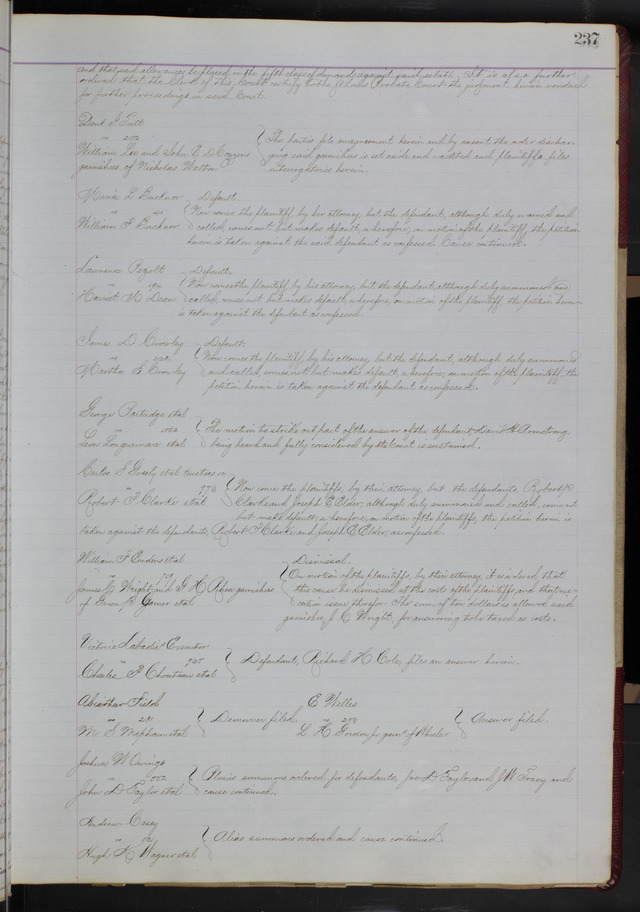 237
and that said allowances be placed in the fifth class of demands against said estate. It is also further
ordered that the Clerk of this Court certify to the Probate Court the judgment herein rendered
for further proceedings in said Court.
Dent G. Tutt
vs
William Lee and John R. D. Cozzens
garnishees of Nicholas Walton
The parties file an agreement herein and by consent the order discharg-
ing said garnishee is set aside and vacated and plaintiff files
interrogatories herein.
L. Bucknor
vs
William F. Bucknor
Default.
Now comes the plaintiff, by her attorney, but the defendant, although duly warned and
called, comes not but makes default, wherefore, on motion of the plaintiff, the petition
herein is taken against the said defendant as confessed. Cause continued.
Lawrence
vs
Harriet M. Dean
Default.
Now comes the plaintiff by his attorney, but the defendant although duly summoned and
called, comes not but makes default, wherefore, on motion of the plaintiff the petition herein
is taken against the defendant as confessed.
James D. Crowley
vs
Martha A. Crowley
Default.
Now comes the plaintiff, by his attorney, but the defendant, although duly summoned
and called, comes not but makes default, wherefore, on motion of the plaintiff, the
petition herein is taken against the defendant as confessed.
George Partridge et al
vs
Levi Longuemare et al
The motion to strike out part of the answer of the defendant David H. Armstrong
being heard and fully considered by the Court is sustained.
Carlos S. Greely et al trustees
vs 976
Robert F. Clarke et al
Now come the plaintiffs, by their attorney, but the defendants, Robert F.
Clarke and Joseph E. Elder, although duly summoned and called, come not
but make default, wherefore, on motion of the plaintiffs, the petition herein is
taken against the defendants, Robert F. Clarke and Joseph E. Elder, as confessed.
William F. Enders et al
vs
James C. Wright and garnishees
of Gamer et al
Dismissal.
On motion of the plaintiffs, by their attorney, it is ordered that
this cause be dismissed at the costs of the plaintiffs and that exe-
cution issue therefor. The sum of ten dollars is allowed said
garnishee, J. C. Wright, for answering to be taxed as costs.
Victoria Labadie Executor
vs 965
Charles P. Chouteau et al
Defendant, Richard H. Cole, files an answer herein.
Abiathar Field
vs
M. S. Mepham et al
Demurrer filed.
E. Welles
vs
L. H. Gordon garn. of Wheeler
Answer filed.
Joshua W. Owings
vs
John D. Taylor et al
Pluries summons ordered for defendants, Jno. D. Taylor and J. W. Tracy and
cause continued.
Andrew Casey
vs
Hugh K. Wagner et al
Alias summons ordered and cause continued.